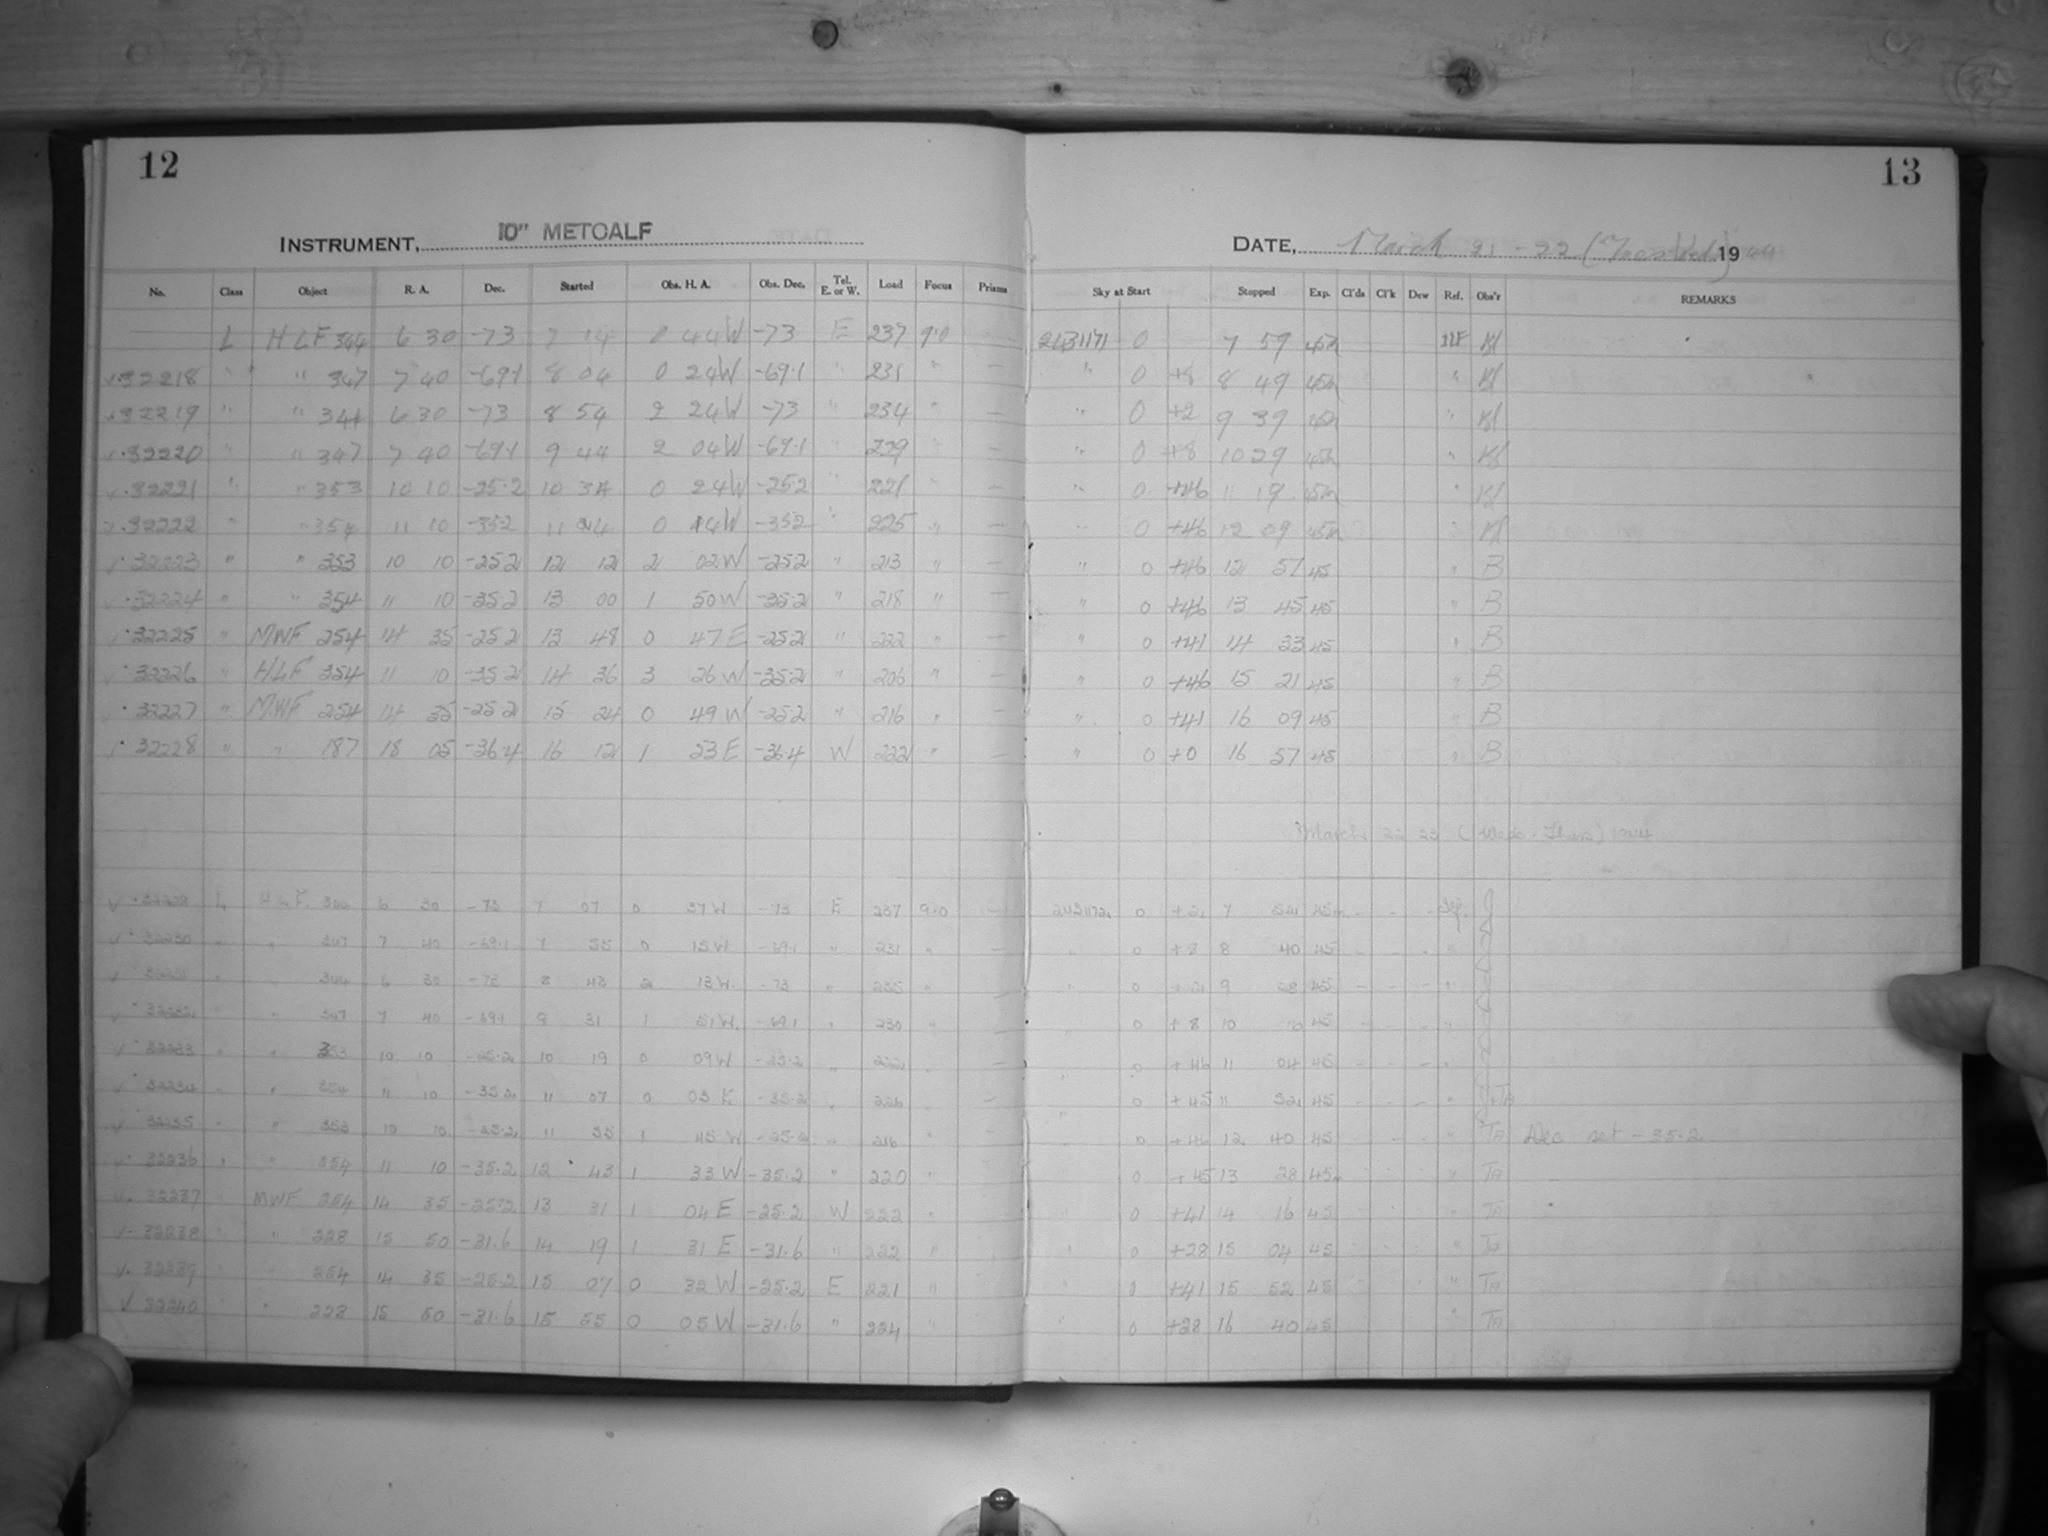 12
13
INSTRUMENT, 10" METCALF
DATE, March 21-22 (Tues-Wed) 1944
No. Class Object R. A. Dec. Started Obs. H. A. Obs. Dec. Tel. E. or W. Load Focus Prisms Sky at Start Stopped Exp. Cl'ds Cl'k Dew Ref. Obs'r REMARKS
L HLF 344 6 30 -73 7 14 0 44W -73 E 237 9.0 0 7 59 45m Bl
32218 " " 347 7 40 -69.1 8 04 0 24W -69.1 " 231 " — " 0 +8 8 49 45m " Bl
32219 " " 344 6 30 -73 8 54 2 24W -73 " 234 " — " 0 +2 9 39 45m " Bl
32220 " " 347 7 40 -69.1 9 44 2 04W -69.1 " 229 " — " 0 +8 10 29 45m " Bl
32221 " " 353 10 10 -25.2 10 34 0 24W -25.2 " 221 " — " 0 +46 11 19 45m " Bl
32222 " " 354 11 10 -35.2 11 24 0 14W -35.2 " 225 " — " 0 +46 12 09 45m " Bl
32223 " " 353 10 10 -25.2 12 12 2 02W -25.2 " 213 " — " 0 +46 12 57 45 " B
32224 " " 354 11 10 -35.2 13 00 1 50W -35.2 " 218 " — " 0 +46 13 45 45 " B
32225 " MWF 254 14 35 -25.2 13 48 0 47E -25.2 " 222 " — " 0 +41 14 33 45 " B
32226 " HLF 354 11 10 -35.2 14 36 3 26W -35.2 " 206 " — " 0 +46 15 21 45 " B
32227 " MWF 254 14 35 -25.2 15 24 0 49W -25.2 " 216 " — " 0 +41 16 09 45 " B
32228 " " 187 18 05 -36.4 16 12 1 53E -36.4 W 222 " — " 0 +0 16 57 45 " B
March 22 23 (Wed-Thurs) 1944
32229 L HLF. 344 6 30 -73 7 07 0 37W -73 E 237 9.0 — 0 +2 7 52 45m - - -
32230 " " 347 7 40 -69.1 7 55 0 15W -69.1 " 231 " — " 0 +8 8 40 45 - - - "
32231 " " 344 6 30 -73 8 43 2 13W -73 " 235 " — " 0 +2 9 28 45 - - - "
32232 " " 347 7 40 -69.1 9 31 1 51W -69.1 " 230 " — " 0 +8 10 16 45 - - - "
32233 " " 353 10 10 -25.2 10 19 0 09W -25.2 " 222 " — " 0 +46 11 04 45 - - - "
32234 " " 354 11 10 -35.2 11 07 0 03E -35.2 " 226 " — " 0 +45 11 52 45 - - - "
32235 " " 353 10 10 -25.2 11 55 1 45W -25.2 " 216 " " 0 +46 12 40 45 - - - " TA Dec set -35.2
32236 " " 354 11 10 -35.2 12 43 1 33W -35.2 " 220 " " 0 +45 13 28 45m " TA
32237 MWF 254 14 35 -25.2 13 31 1 04E -25.2 W 222 " " 0 +41 14 16 45 " TA
32238 " 228 15 50 -31.6 14 19 1 31E -31.6 " 222 " " 0 +28 15 04 45 " TA
32239 " 254 14 35 -25.2 15 07 0 32W -25.2 E 221 " " 0 +41 15 52 45 " TA
32240 " 228 15 50 -31.6 15 55 0 05W -31.6 " 224 " " 0 +28 16 40 45 " TA